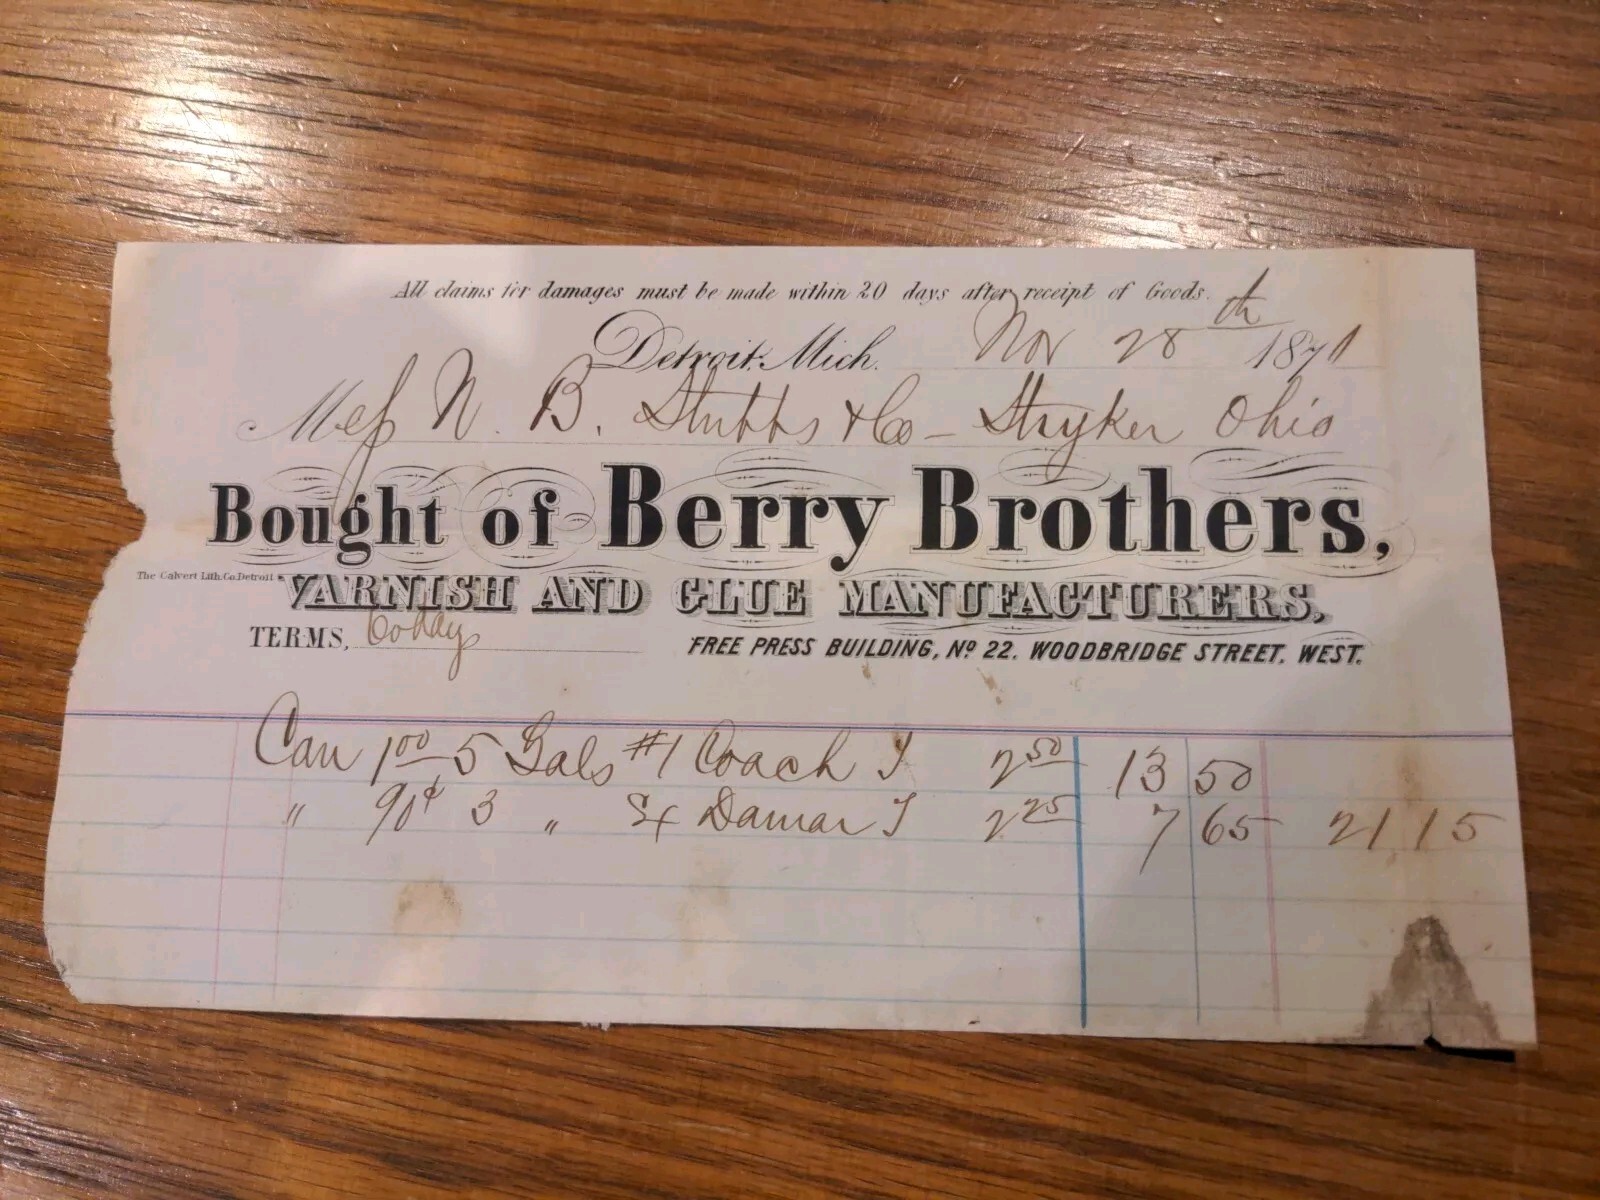 All claims for damages must be made within 20 days after receipt of Goods.
Detroit, Mich. Nov 28th 1871
Mess N. B. Stubbs & Co – Stryker Ohio
Bought of Berry Brothers,
The Calvert Lith. Co. Detroit
VARNISH AND GLUE MANUFACTURERS,
TERMS, 60 days
FREE PRESS BUILDING, No 22. WOODBRIDGE STREET, WEST.
Can 1 00 5 Gals #1 Coach 2 50 13 50
" 90¢ 3 " Ex Damar 2 25 7 65 21 15